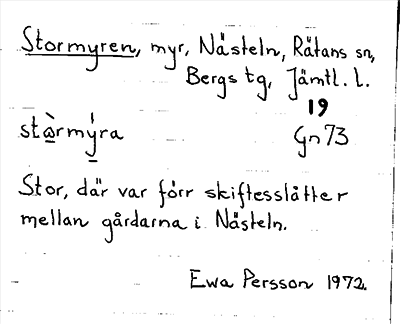 Stormyren, myr, Nästeln, Rätans sn,
Bergs tg, Jämtl. l.
19
stàrmýra Gn 73
Stor, där var förr skiftesslåtter
mellan gårdarna i Nästeln.
Ewa Persson 1972.